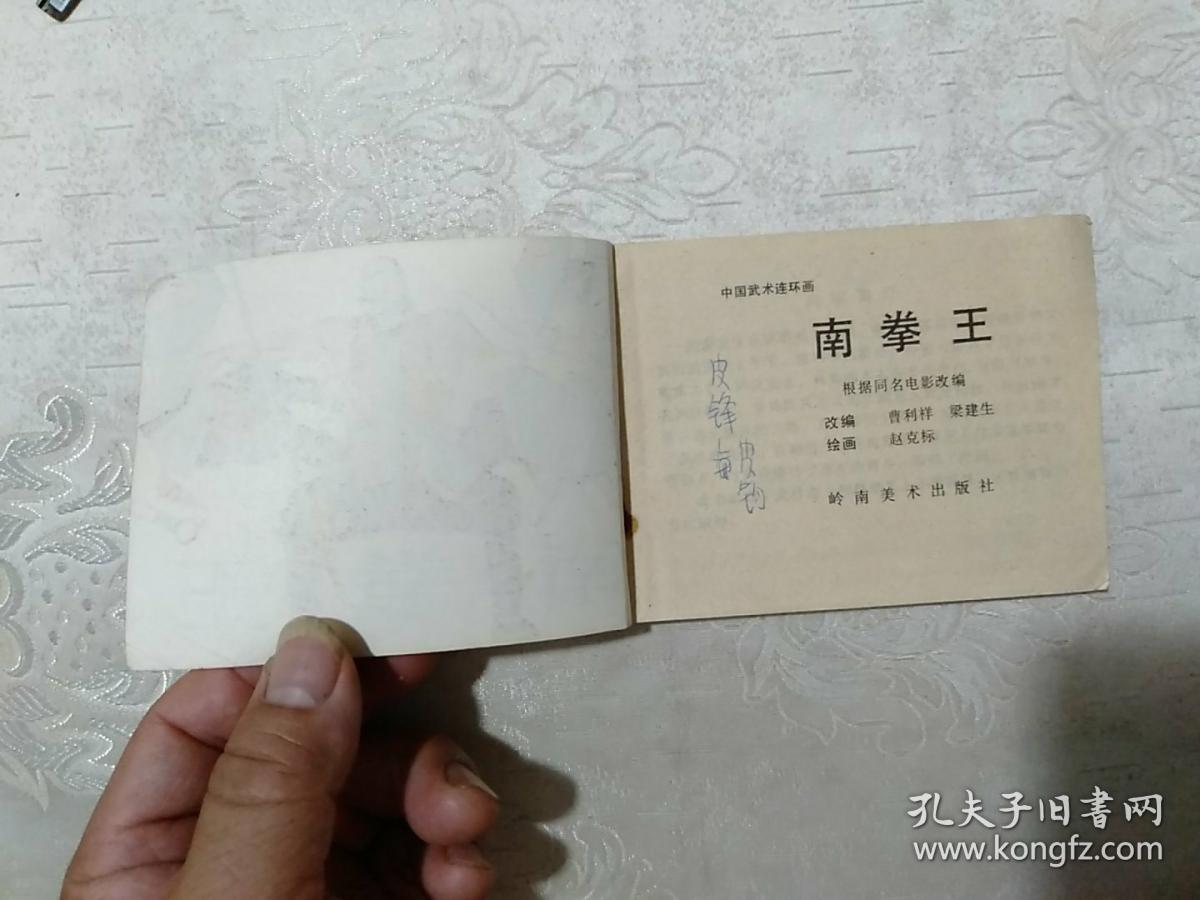 中国武术连环画
南拳王
根据同名电影改编
改编 曹利祥 梁建生
绘画 赵克标
岭南美术出版社
皮锋
皮
孔夫子旧書网
www.kongfz.com